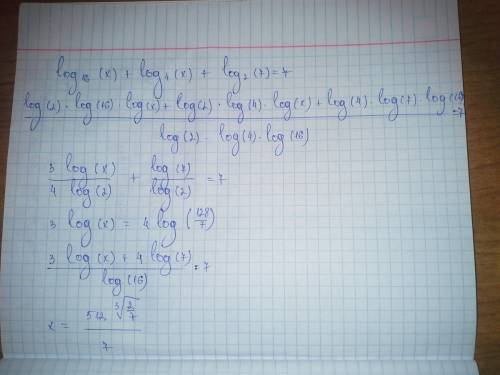 log₁₆(x) + log₄(x) + log₂(7) = 7
(log(2)·log(16)·log(x) + log(2)·log(4)·log(x) + log(4)·log(7)·log(16)) / (log(2)·log(4)·log(16)) = 7
3 log(x) / 4 log(2) + log(7) / log(2) = 7
3 log(x) = 4 log(128/7)
(3 log(x) + 4 log(7)) / log(16) = 7
x = 512 ∛(2/7) / 7